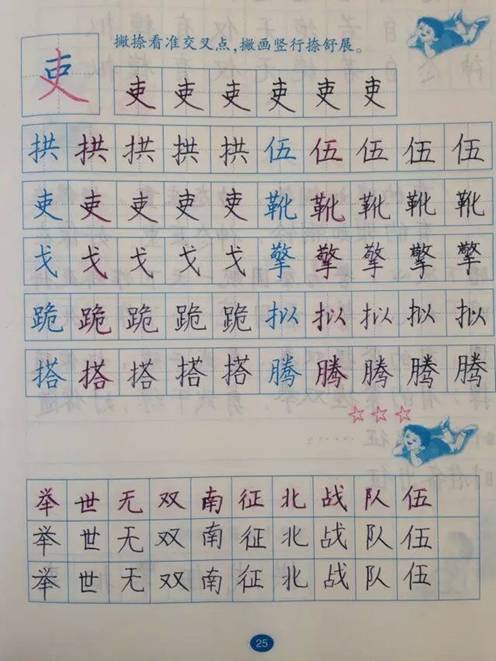 撇捺看准交叉点,撇画竖行捺舒展。
吏 吏 吏 吏 吏 吏 吏
拱 拱 拱 拱 拱 伍 伍 伍 伍 伍
吏 吏 吏 吏 吏 靴 靴 靴 靴 靴
戈 戈 戈 戈 戈 擎 擎 擎 擎 擎
跪 跪 跪 跪 跪 拟 拟 拟 拟 拟
搭 搭 搭 搭 搭 腾 腾 腾 腾 腾
举 世 无 双 南 征 北 战 队 伍
举 世 无 双 南 征 北 战 队 伍
举 世 无 双 南 征 北 战 队 伍
25